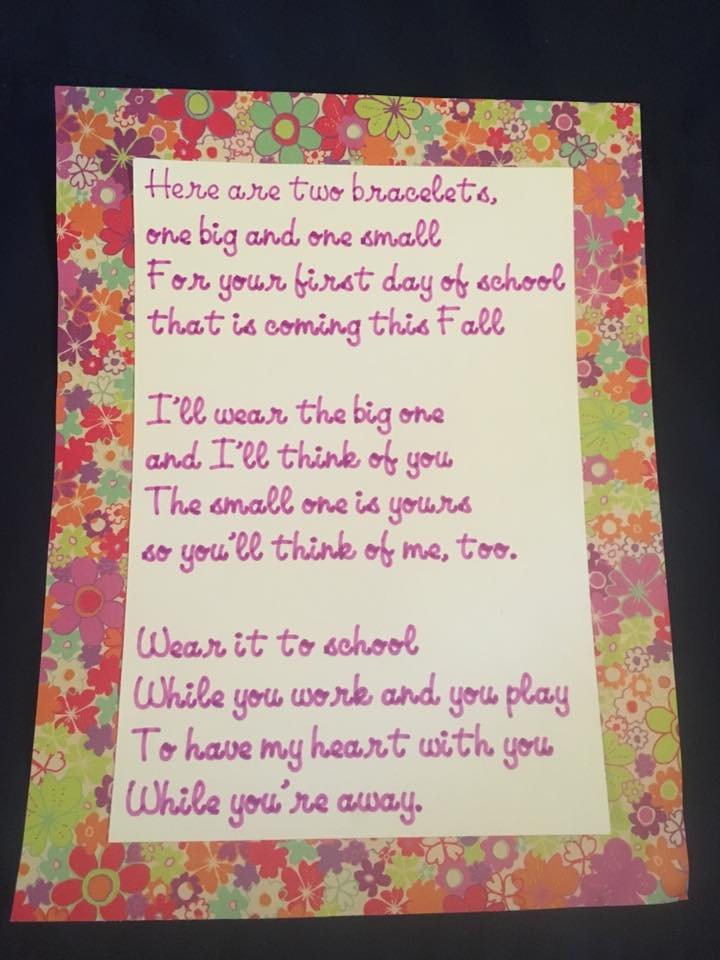 Here are two bracelets,
one big and one small
For your first day of school
that is coming this Fall
I'll wear the big one
and I'll think of you
The small one is yours
so you'll think of me, too.
Wear it to school
While you work and you play
To have my heart with you
While you're away.